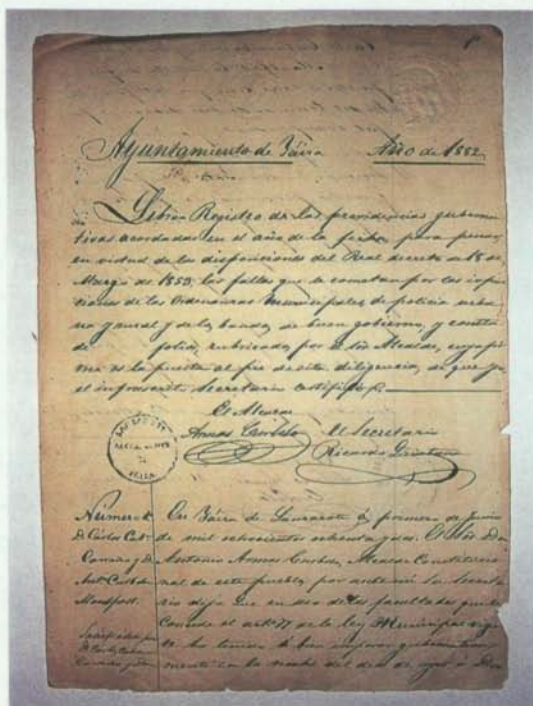 Ayuntamiento de Yáiza Año de 1882
Libro Registro de las providencias guberna
tivas acordadas en el año de la fecha, para penar
en virtud de las disposiciones del Real decreto de 18 de
Mayo de 1853, las faltas que se cometan por las infrac
ciones de las Ordenanzas Municipales de policia urba
na y rural y de los bandos de buen gobierno, y consta
de folios, rubricados por el Sor Alcalde, cuya fir
ma es la puesta al pie de esta diligencia, de que yo
el infrascrito Secretario certifico.
El Alcalde
Armas El Secretario
Ricardo
Número
D. Cárlos
y D.
Anto
Monfort.
En Yáiza de Lanzarote á primero de Junio
de mil ochocientos ochenta y dos. El Sor Don
Antonio Armas Alcalde Constitucio
nal de este pueblo, por ante mi su Secreta
rio dijo: Que en uso de las facultades que le
Concede el artº 77 de la ley Municipal vigen
te ha tenido á bien imponer gubernativa
mente en la noche del dia de ayer á Don